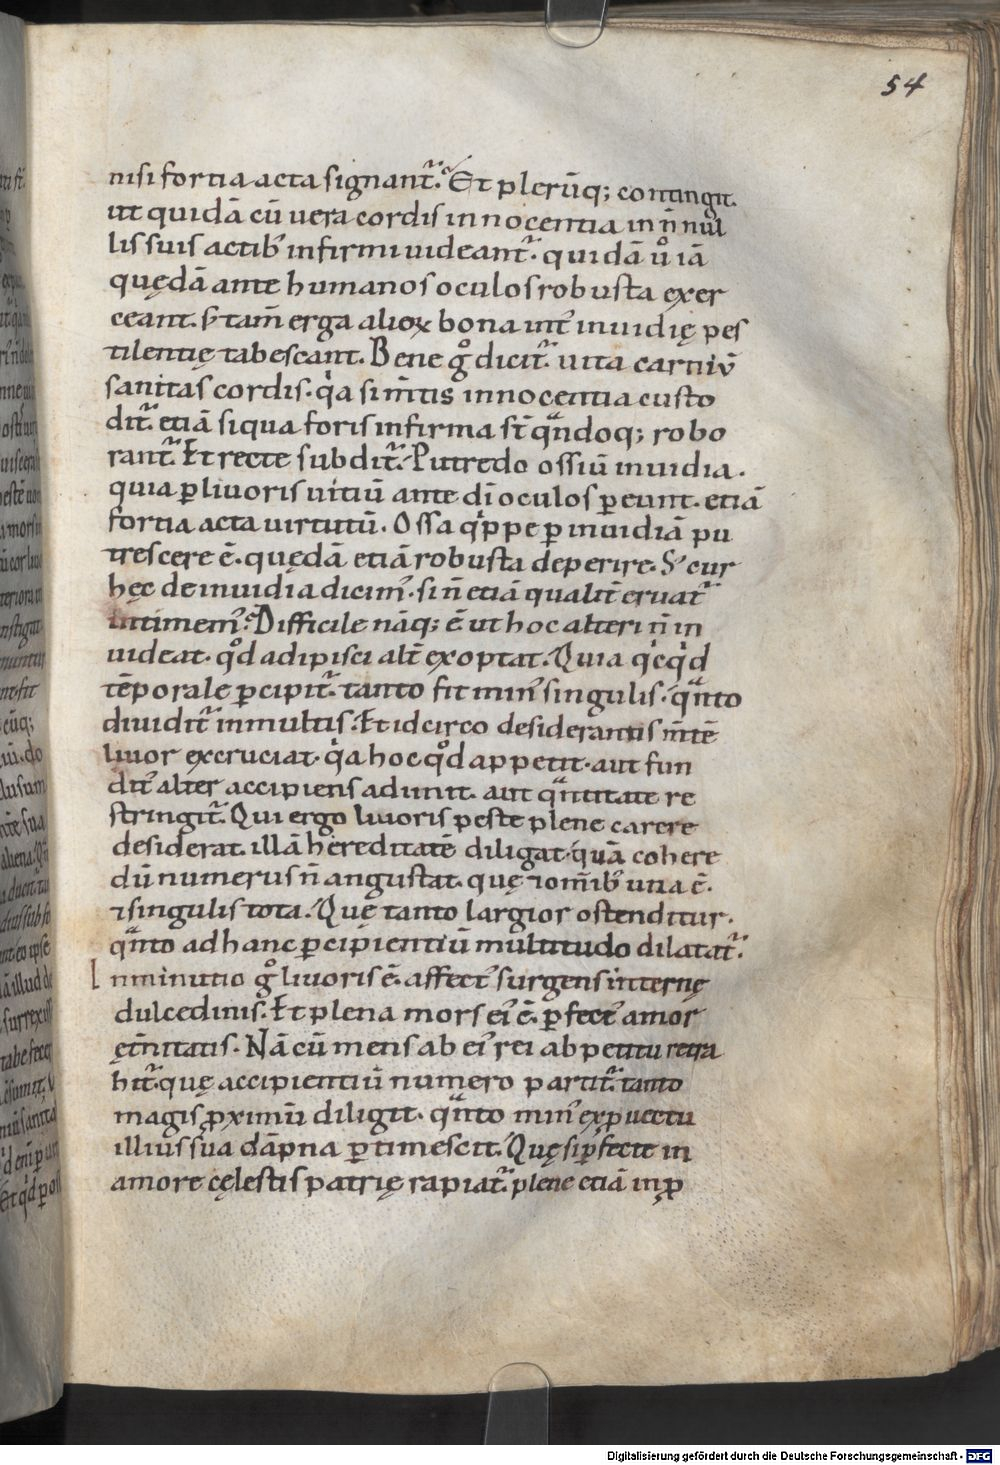 54
nisi fortia acta signant᷑. Et plerūq; contingit.
ut quidā cū uera cordis innocentia in n̄ nul
lis suis actib; infirmi uideant᷑. quidā ů iā
quędā ante humanos oculos robusta exer
ceant. s; tam̄ erga alioꝝ bona int᷑ inuidię pes
tilentię tabescant. Bene gͦ dicit᷑. uita carniū
sanitas cordis. qͥa si m̄tis innocentia custo
dit᷑. etiā siqua foris infirma st̄ qͣndoq; robo
rant᷑. Et recte subdit᷑. Putredo ossiū inuidia.
quia ꝑ liuoris uitiū ante dī oculos ꝑeunt. etiā
fortia acta uirtutū. Ossa qͥppe ꝑ inuidiā pu
trescere ē. quędā etiā robusta deperire. S; cur
hęc de inuidia dicim᷒. si n̄ etiā qualit᷑ eruat᷑
intimem᷒. Difficile nāq; ē ut hoc alteri n̄ in
uideat. qͦd adipisci alt᷑ exoptat. Quia qͥcqͥd
tēporale ꝑcipit᷑. tanto fit min᷒ singulis. qͣnto
diuidit᷑ in multis. Et idcirco desiderantis m̄tē
liuor excruciat. qͥa hoc qͦd appetit. aut fun
dit᷒ alter accipiens adimit. aut qͣntitate re
stringit᷑. Qui ergo liuoris peste plene carere
desiderat. illā hereditatē diligat. quā cohere
dū numerus n̄ angustat. quę ⁊ om̄ib; una ē.
⁊ singulis tota. Quę tanto largior ostenditur.
qͣnto ad hanc ꝑcipientiū multitudo dilatat᷑.
Inminutio gͦ liuoris ē. affect᷒ surgens internę
dulcedinis. Et plena mors ei᷒ ē. ꝑfect᷒ amor
ęt̄nitatis. Nā cū mens ab ei᷒ rei abpetitu retra
hit᷑. quę accipientiū numero partit᷑. tanto
magis ꝓximū diligit. qͣnto min᷒ ex puectu
illius sua dāpna ꝑtimescit. Quę si ꝑfecte in
amore cęlestis patrię rapiat᷑. plene etiā in ꝓ
Digitalisierung gefördert durch die Deutsche Forschungsgemeinschaft - DFG